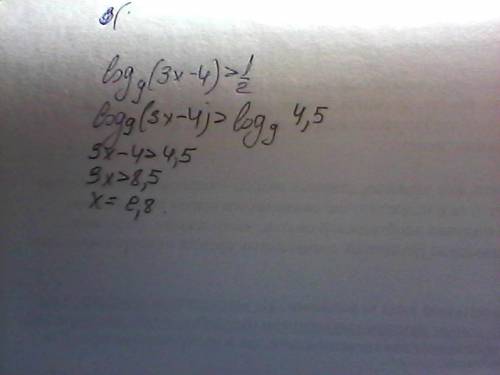 log₉(3x-4)>1/2
log₉(3x-4)>log₉ 4,5
3x-4>4,5
3x>8,5
x=2,8